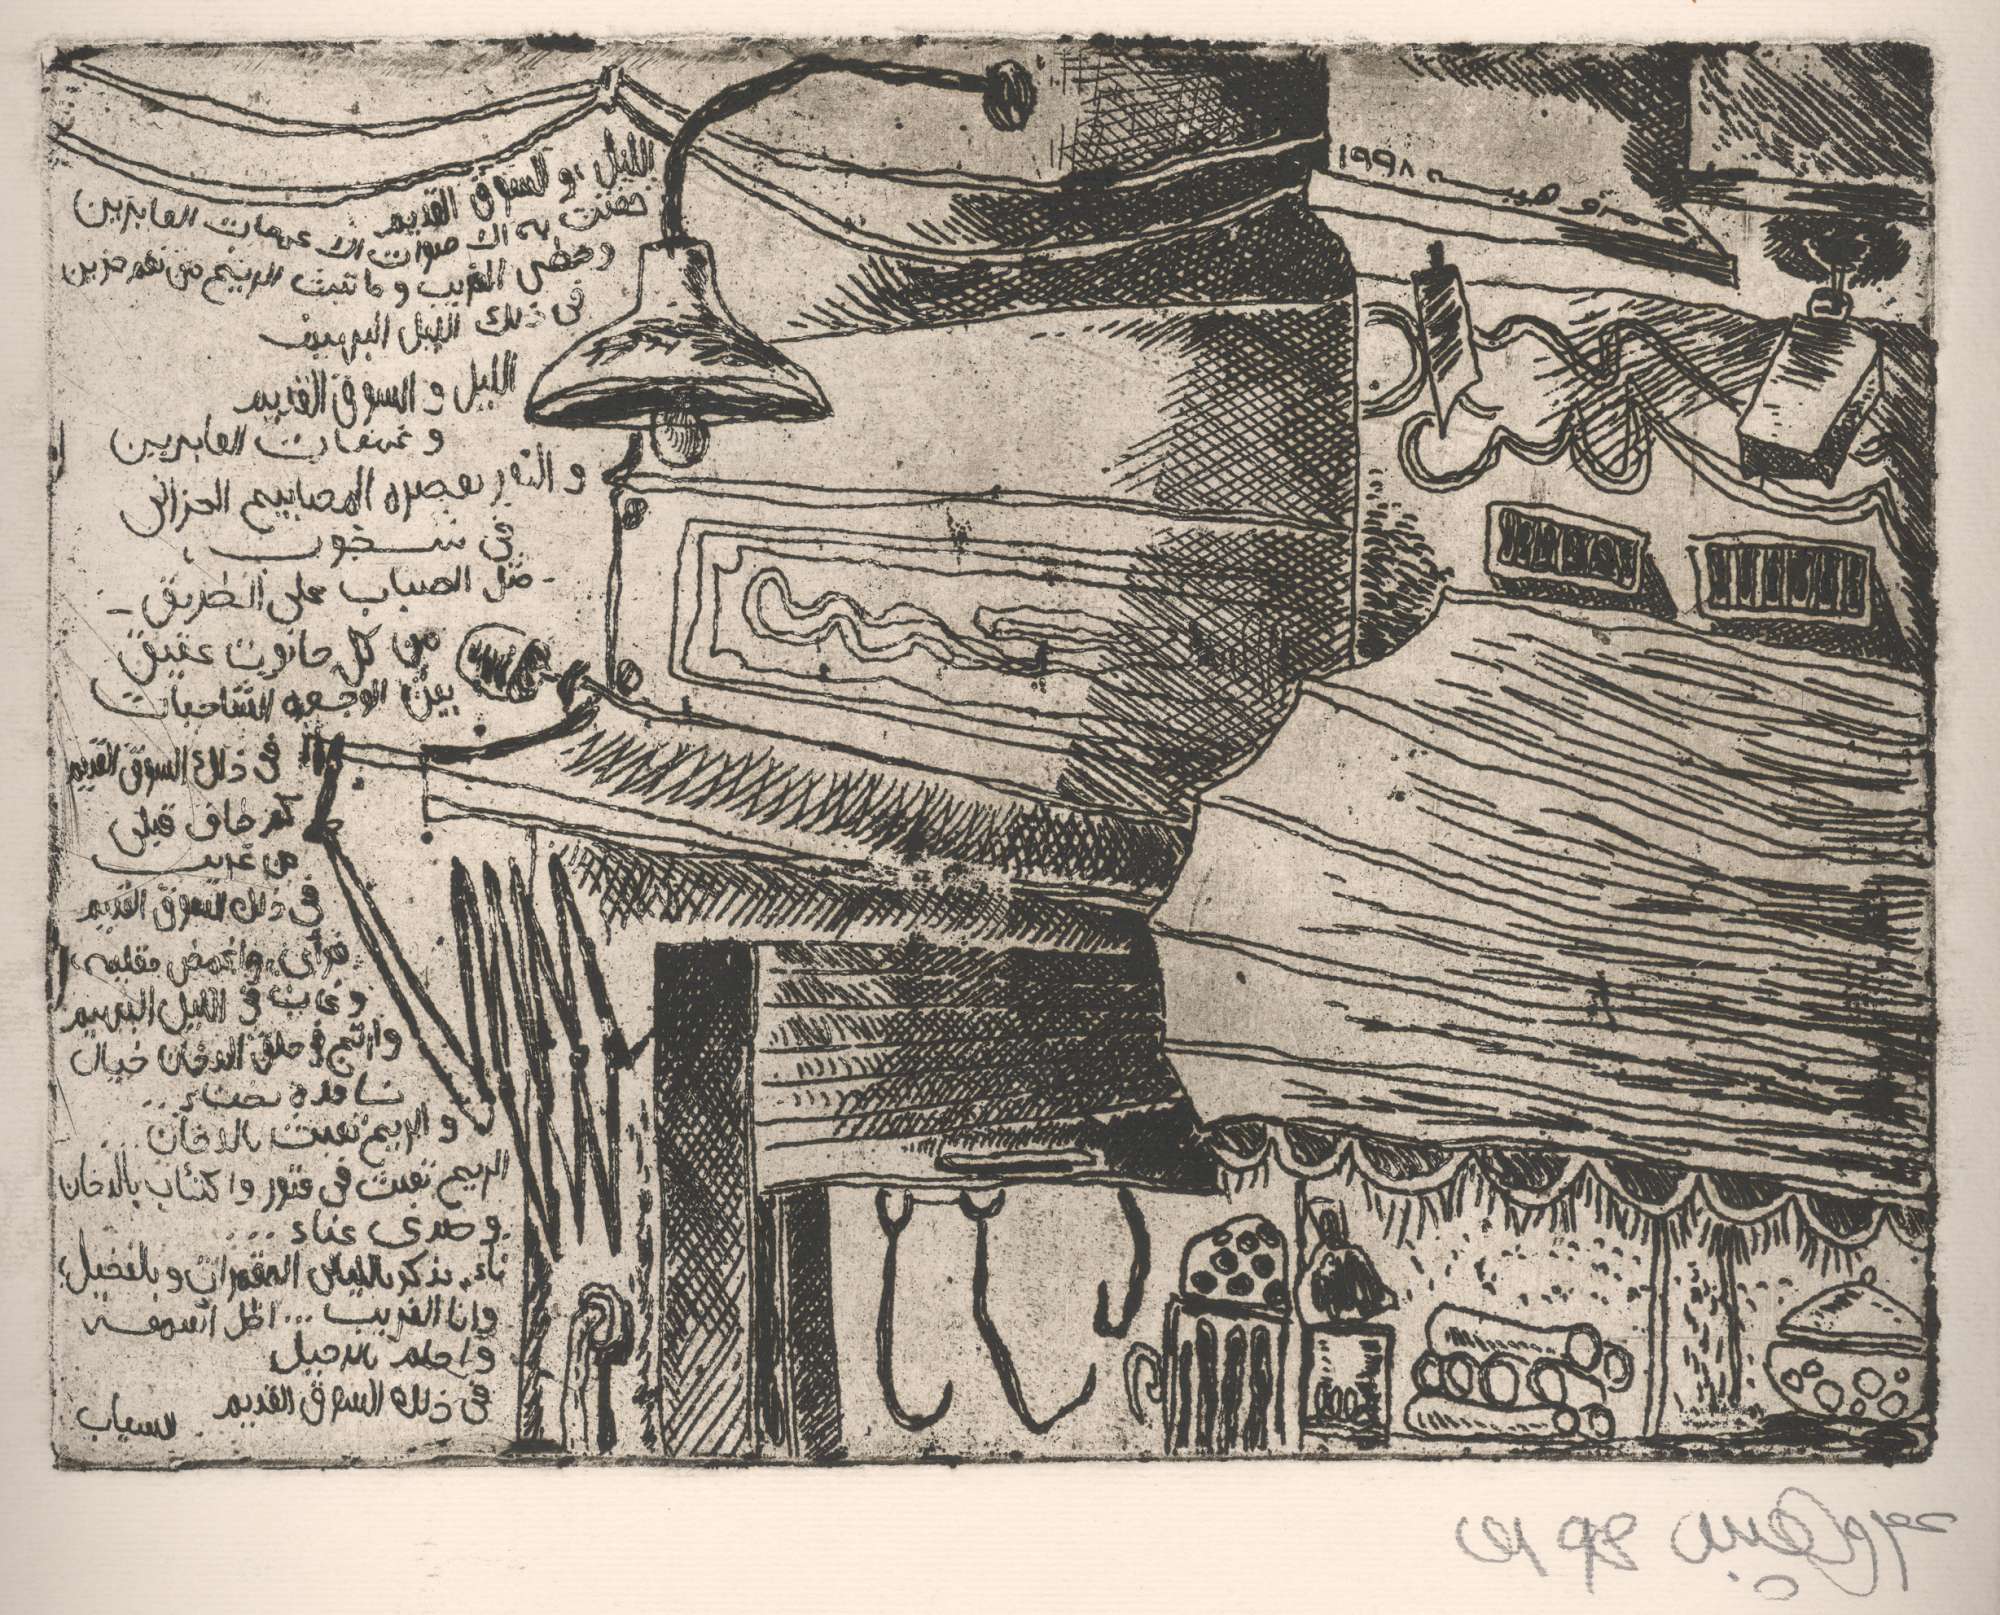 الليل، و السوق القديم
خفتت به الاصوات الا غمغمات العابرين
وخطى الغريب وما تبث الريح من نغم حزين
فى ذلك الليل البهيم
الليل و السوق القديم
و غمغمات العابرين
و النور تعصره المصابيح الحزانى
فى شحوب،
- مثل الضباب على الطريق -
من كل حانوت عتيق
بين الوجوه الشاحبات
فى ذلك السوق القديم
كم طاف قبلى
من غريب
فى ذلك السوق القديم
فرأى، واغمض مقلتيه،
وغاب فى الليل البهيم
وارتج فى حلق الدخان خيال
نافذة تضاء..
و الريح تعبث بالدخان..
الريح تعبث فى فتور واكتئاب بالدخان
وصدى غناء....
ناء، يذكر بالليالى المقمرات و بالنخيل؛
وانا الغريب... اظل أسمعه
واحلم بالرحيل
فى ذلك السوق القديم
السياب
عمرو هيبه ١٩٩٨
عمرو هيبه